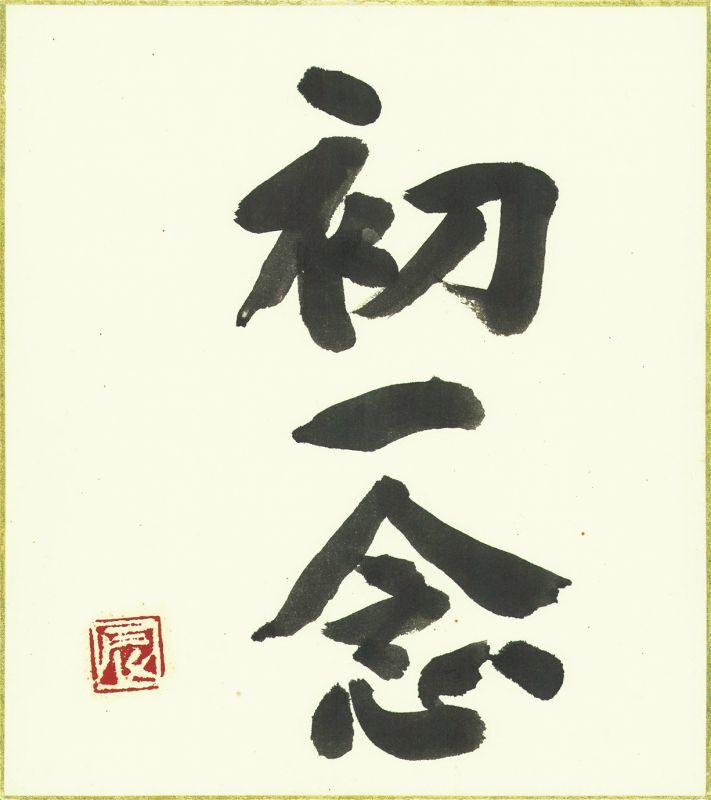 初一念
辰